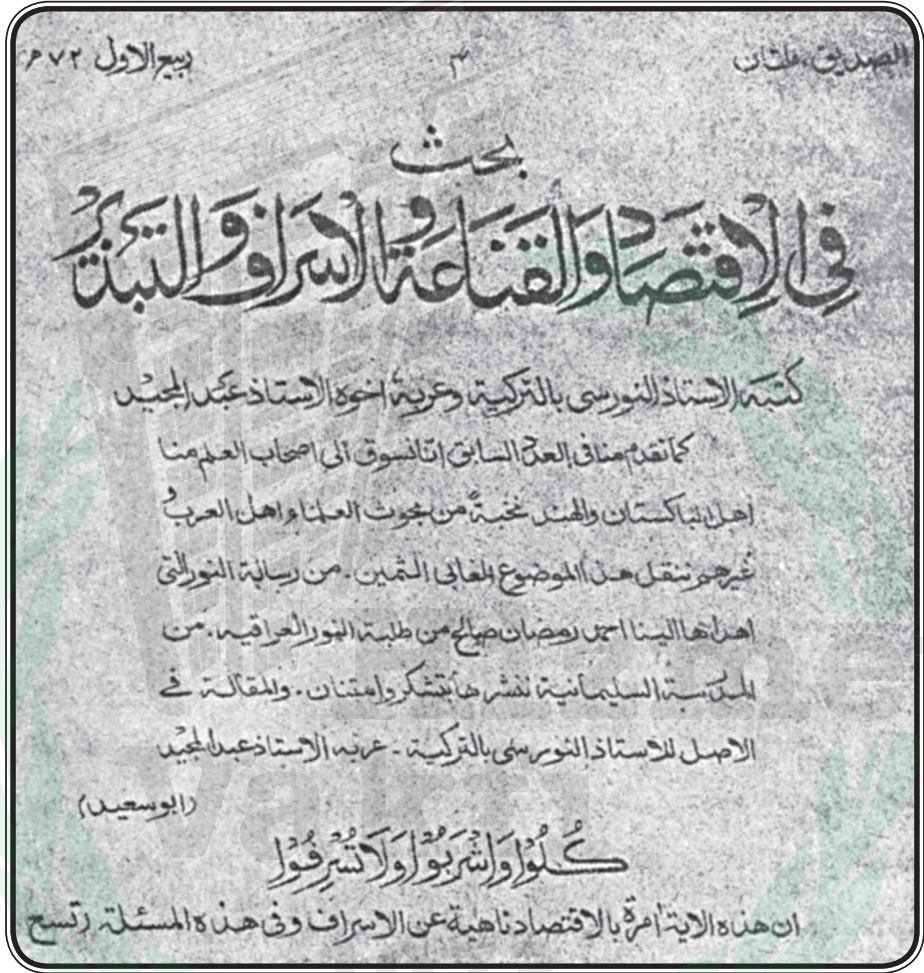 الصديق، ملتان ٣ ربيع الاول ٧٢ھ
بحث
في الاقتصاد والقناعة والاسراف والتبذير
كتبه الاستاذ النورسى بالتركية وعربه اخوه الاستاذ عبد المجيد
كما تقدم منا فى العدد السابق اننا نسوق الى اصحاب العلم منا
اهل الباكستان والهند نخبة من بحوث العلماء اهل العرب و
غيرهم ننقل هذا الموضوع الغالى الثمين ـ من رسالة النور التى
اهداها الينا احمد رمضان صالح من طلبة النور العراقيه ـ من
المدرسة السليمانية ننشرها بتشكر وامتنان ـ والمقالة فى
الاصل للاستاذ النورسى بالتركية ـ عربه الاستاذ عبد المجيد
(ابو سعيد)
كُلُوْا وَاشْرَبُوْا وَلَا تُسْرِفُوْا
ان هذه الاية امرة بالاقتصاد ناهية عن الاسراف وفى هذه المسئلة (تسع
Hizmet
Vakfı